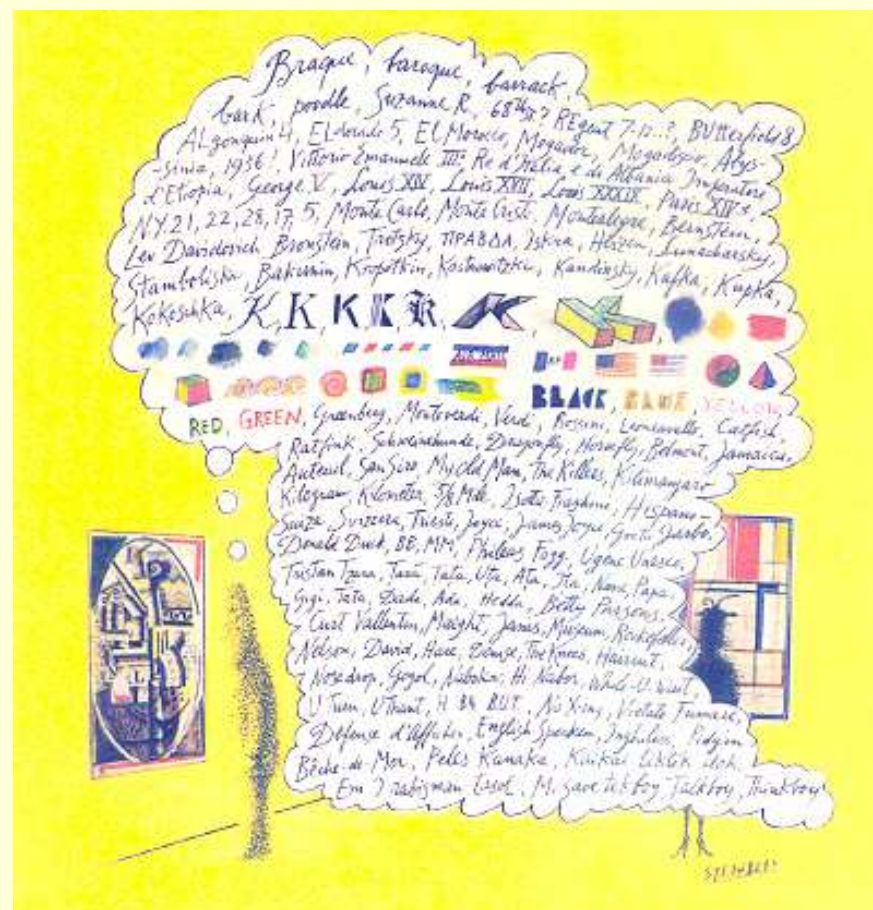 Braque, baroque, barrack,
bark, poodle, Suzanne R., 68th St? REgent 7-12..?, BUtterfield 8
ALgonquin 4, ELdorado 5, El Morocco, Mogador, Mogadiscio, Abys-
-sinia, 1936!, Vittorio Emanuele III° Re d'Italia e di Albania Imperatore
d'Etiopia, George V, Louis XIV, Louis XVII, Louis XXXIX, Paris XIVe,
NY 21, 22, 28, 17, 5, Monte Carlo, Monte Cristi, Montealegre, Bernstein,
Lev Davidovich Bronstein, Trotzky, ПРАВДА, Iskra, Herzen, Lunacharsky,
Stambolisky, Bakunin, Kropotkin, Kostrowitzky, Kandinsky, Kafka, Kupka,
Kokoschka, K, K, K, K, K, K,
AIR MAIL
BLACK, BLUE, YELLOW,
RED, GREEN, Greenberg, Monteverdi, Verdi, Rossini, Leoncavallo, Catfish,
Ratfink, Schweinehunde, Dragonfly, Horsefly, Belmont, Jamaica,
Auteuil, San Siro, My Old Man, The Killers, Kilimanjaro
Kilogram, Kilometer, 5/8 Mile, Isotta Fraschini, Hispano-
Suiza, Svizzera, Trieste, Joyce, James Joyce, Greta Garbo,
Donald Duck, BB, MM, Phileas Fogg, Ugene Unesco,
Tristan Tzara, Tata, Uta, Ata, Ira, Nana, Papa,
Gigi, Tata, Dada, Ada, Hedda, Betty Parsons,
Curt Valentin, Maeght, Janis, Museum, Rockefeller,
Nelson, David, Hare, Denise, The Knees, Haircut,
Nosedrop, Gogol, Nabokov, Hi Nabor, While-U-Wait,
U Turn, U Thant, H B4 BUT, No Xing, Vietato Fumare,
Défense d'Afficher, English Spoken, Inghilese, Pidgin
Bêche-de-Mer, Peles Kanaka, Kaikai
Em I rabisman, M. save tekboy Talkboy, Thinkboy
STEINBERG